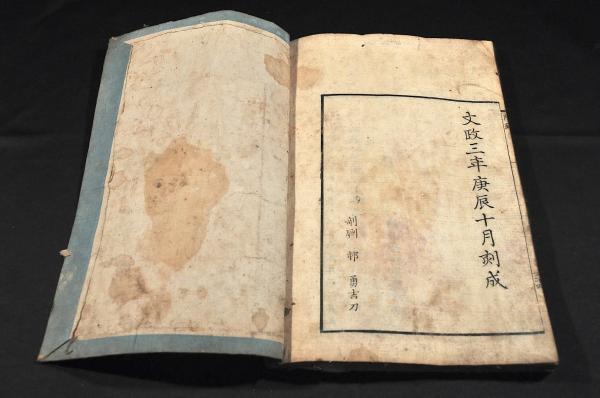 文政三年庚辰十月刻成
剞劂 勇吉刀